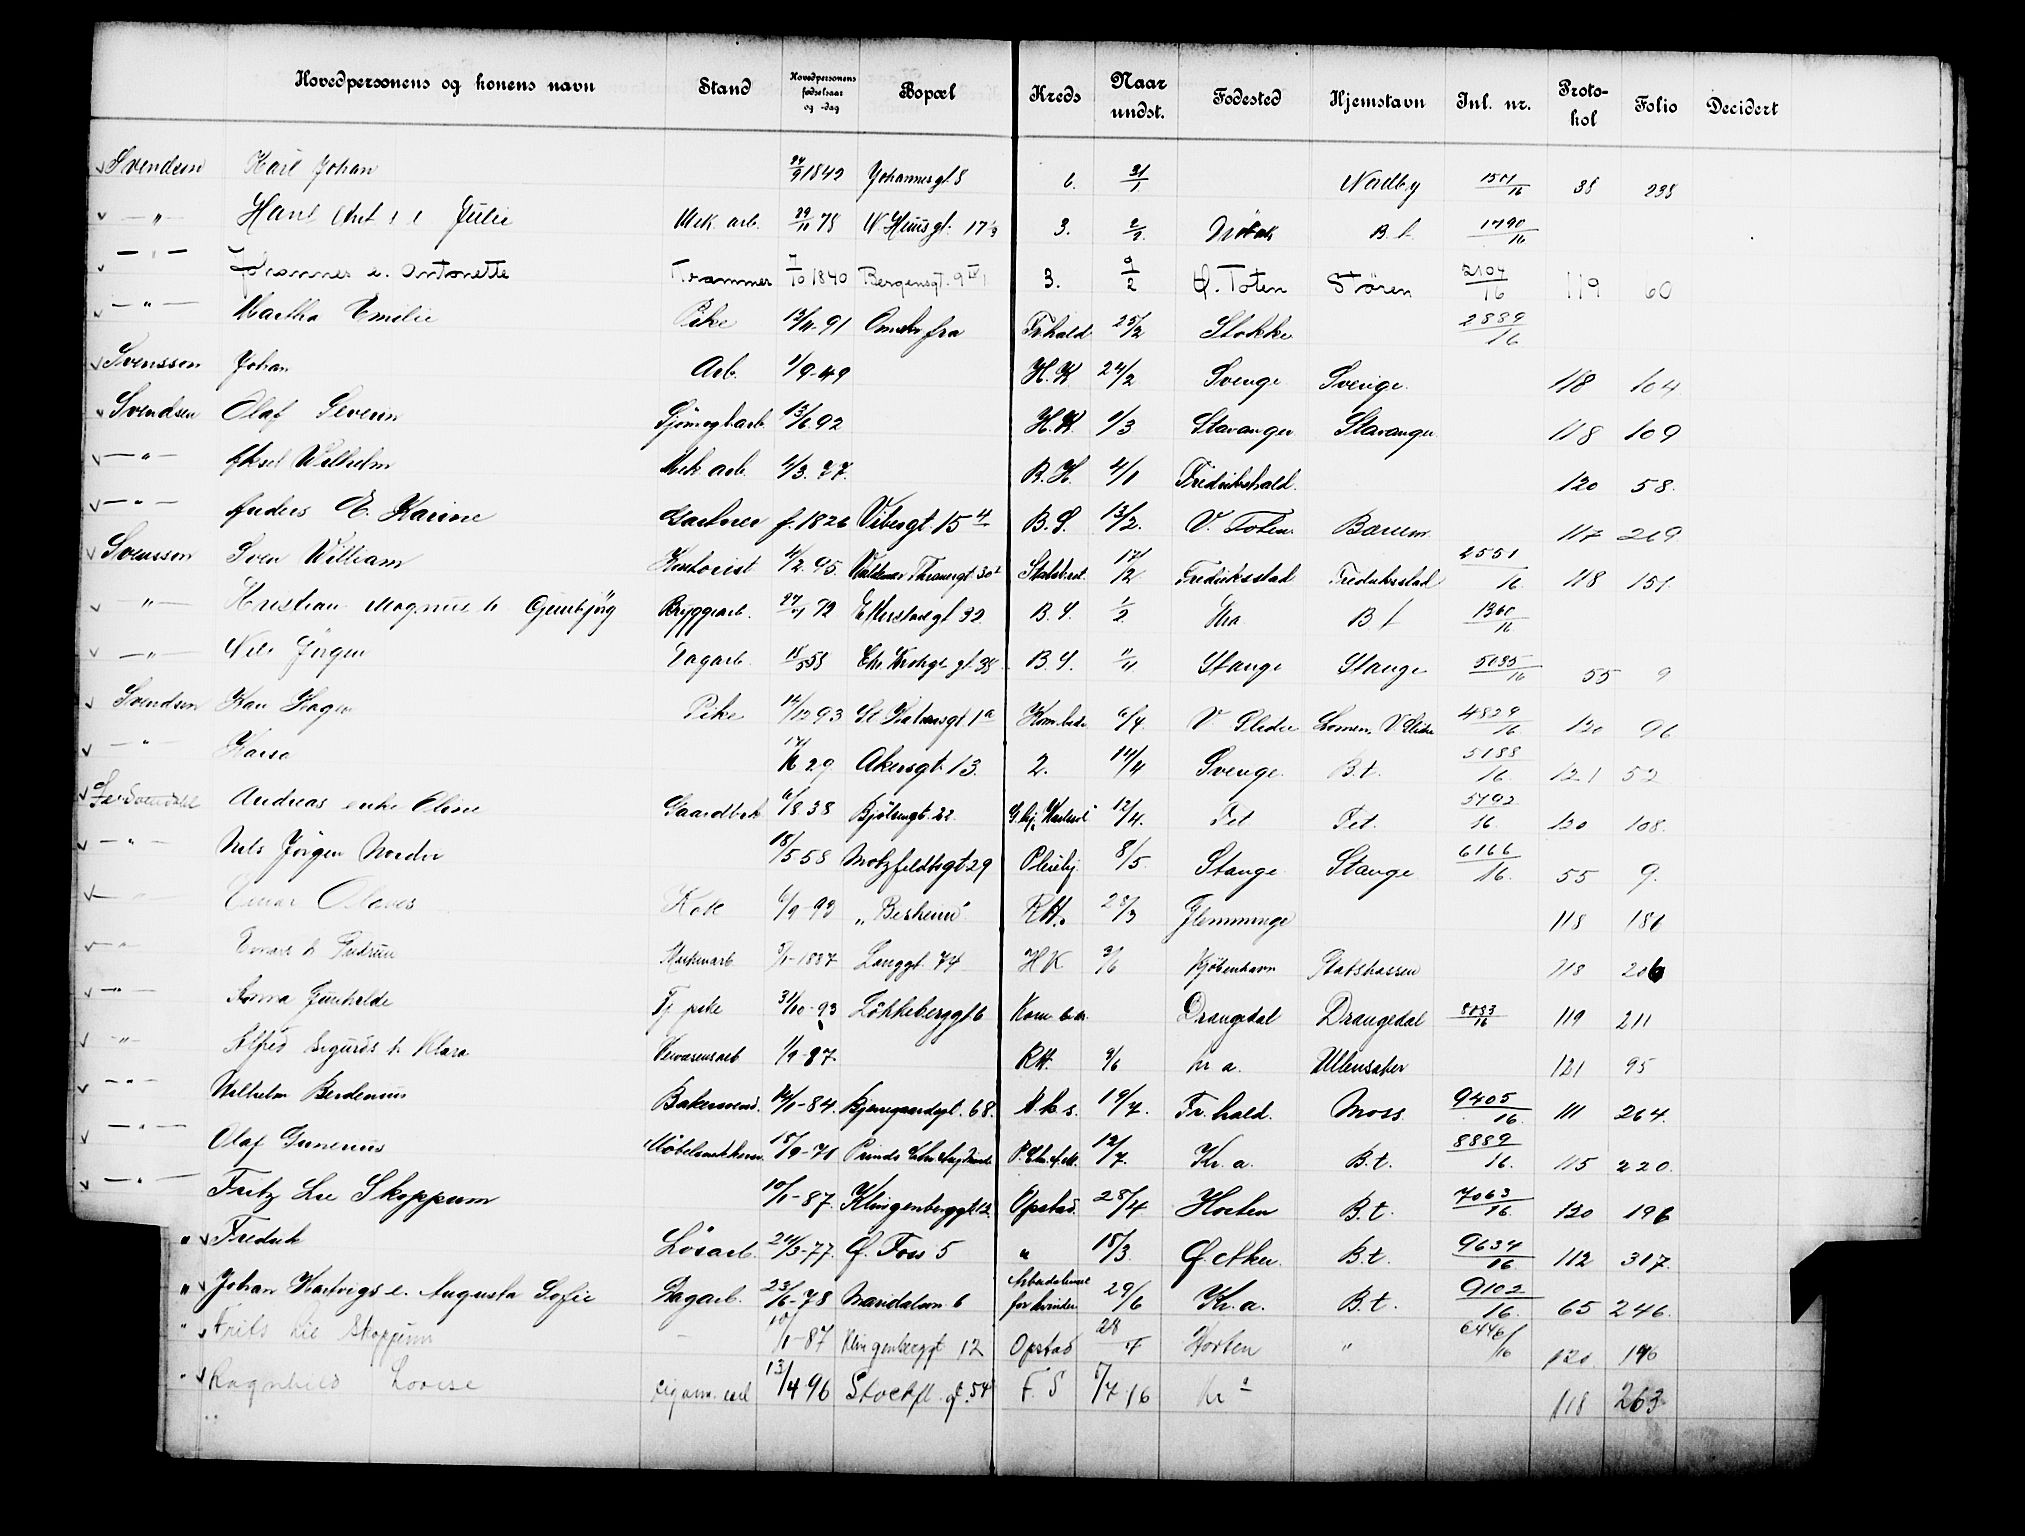 Hovedpersonens og konens navn Stand Hovedpersonens fødselsaar og -dag Bopæl Kreds Naar undst. Fødested Hjemstavn Inl. nr. Protokol Folio Decidert
Svendsen Karl Johan 1842 Johannesgt 8 6. 31/1 Nordby 1501/16 38 238
— " — Julie Mek. arb. 29/11 78 3. 2/2. B.t. 1790/16
— " — Johannes e. Antonette Kræmmer 7/10 1840 Bergensgt. 9 3. 9/2 Ø. Toten Støren 2104/16 119 60
— " — Martha Emilie Pike 13/4. 91 fra Fr.hald 25/2 Stokke 2889/16
Svensson Johan Arb. 1/9-49 H.K 24/2 Sverige Sverige. 118 104
Svendsen Olaf Severin 13/6 92 H.K. 1/3 Stavanger Stavanger 118 109
— " — Aksel Wilhelm Mek arb. 4/3. 77. B.H. 4/1 Fredrikshald. 120 58.
— " — Anders E. Karine Gartner f. 1826 Vibesgt. 15 4 B.S. 13/2. V. Toten Bærum 117 209
Svensson Sven William Kontorist 4/2. 95. 17/12 Fredriksstad Fredriksstad 2551/16 118 151.
— " — Kristian Magnus h. Gunbjörg Bryggearb. 92 32 B.S. 1/2 Kra B t 1360/16
— " — Nils Jørgen Dagarb. 18/5 58 Chr Krohgs gt. 38 B.S. 11/11 Stange Stange 5035/16 55 9
Svendsen Kari Hagen Pike 14/12 93 1a 6/4. V Slidre Lomen, V. Slidre 4829/16 120 96
— " — 29. Akersgt. 13. 2. 14/4 Sverige. B.t. 5188/16. 121 52
Andreas enke Oline Gaardbrk 6/8. 38 Bjölsengt. 22. 12/4. Fet Fet. 5792/16 120 108.
— " — Nils Jørgen Nordov 18/5 58 Motzfeldtsgt 29 Pleiehj. 8/5. Stange Stange 6166/16. 55 9.
— " — Einar Olaves Kok 6/9-93 „Besheim" RH. 28/3 Flemminge 118 181
— " — Einar h Gudrun 5/1-1887 Langgt. 74 H K 3/6 Kjøbenhavn Statskassen 118 206
— " — Anna Gunhilde Tj pike 31/10-93 Løkkeberggt 6 Kom. Drangedal Drangedal 8083/16 119 211
— " — Alfred Sigurds h Klara 1/9-87. RH. 9/6 kr a. Ullensaker 121 95
— " — Wilhelm Berdenius Bakersvend. 14/1-84. Bjerregaardsgt. 68. A.k.s. 19/7. Fr.hald. Moss. 9405/16. 111 264.
— " — Olaf Gunerius Möbelsnekker. 15/9-78 12/7. Kr. a. B.t. 8889/16. 115 220.
— " — Fritz Lie Skoppum 10/1-87. Klingenberggt. 12. Opstad. 28/4 Horten B.t. 7063/16. 120 196
" Fredrik Løsarb. 24/3-77. Ø. Foss 5 " 18/3. Ø. Aker. B.t. 9634/16 112 317.
" Johan Hartvigs e. Augusta Sofie Dagarb. 23/6-78 Maridalsvn 6 Arbeidshuset for kvinder 29/6 Kr. a. B.t. 9102/16. 65 246.
" Frits Lie Skoppum — 10/1-87 Klingenberggt 12 Opstad 28/4 Horten " 6446/16 120 196
" Ragnhild Lovise cigarm. arb 13/4 96 F. S 7/7 16 kr a 118 263